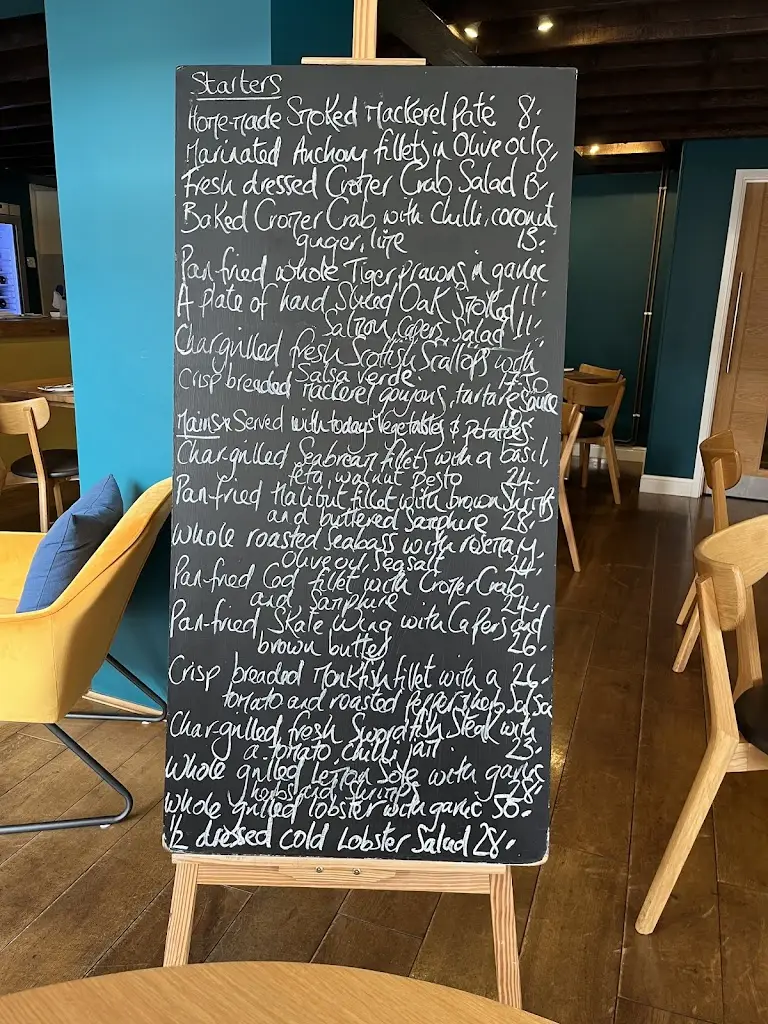 Starters
Home-made Smoked Mackerel Paté 8.
Marinated Anchovy fillets in Olive oil 8.
Fresh dressed Cromer Crab Salad
Baked Cromer Crab with Chilli, coconut,
ginger, lime 13.
Pan-fried whole Tiger prawns in garlic
11.
A plate of hand Sliced Oak Smoked
Salmon, Capers, Salad 11.
Chargrilled fresh Scottish Scallops with
Salsa verde
Crisp breaded Mackerel goujons, tartare sauce
10.
Mains * Served with todays Vegetables & potatoes.
Char-grilled Seabream fillets with a basil,
feta, walnut pesto 24.
Pan-fried Halibut fillet with brown Shrimps
and buttered Samphire 28.
Whole roasted Seabass with rosemary,
Olive oil, Sea salt 24.
Pan-fried Cod fillet with Cromer Crab
and Samphire 24.
Pan-fried Skate Wing with Capers and
brown butter 26.
Crisp breaded Monkfish fillet with a 26.
tomato and roasted pepper, herb Salsa
Char-grilled fresh Swordfish Steak with
a tomato, chilli jam. 23.
Whole grilled Lemon Sole with garlic
herbs and shrimps 28.
Whole grilled lobster with garlic 50.
1/2 dressed cold Lobster Salad 28.